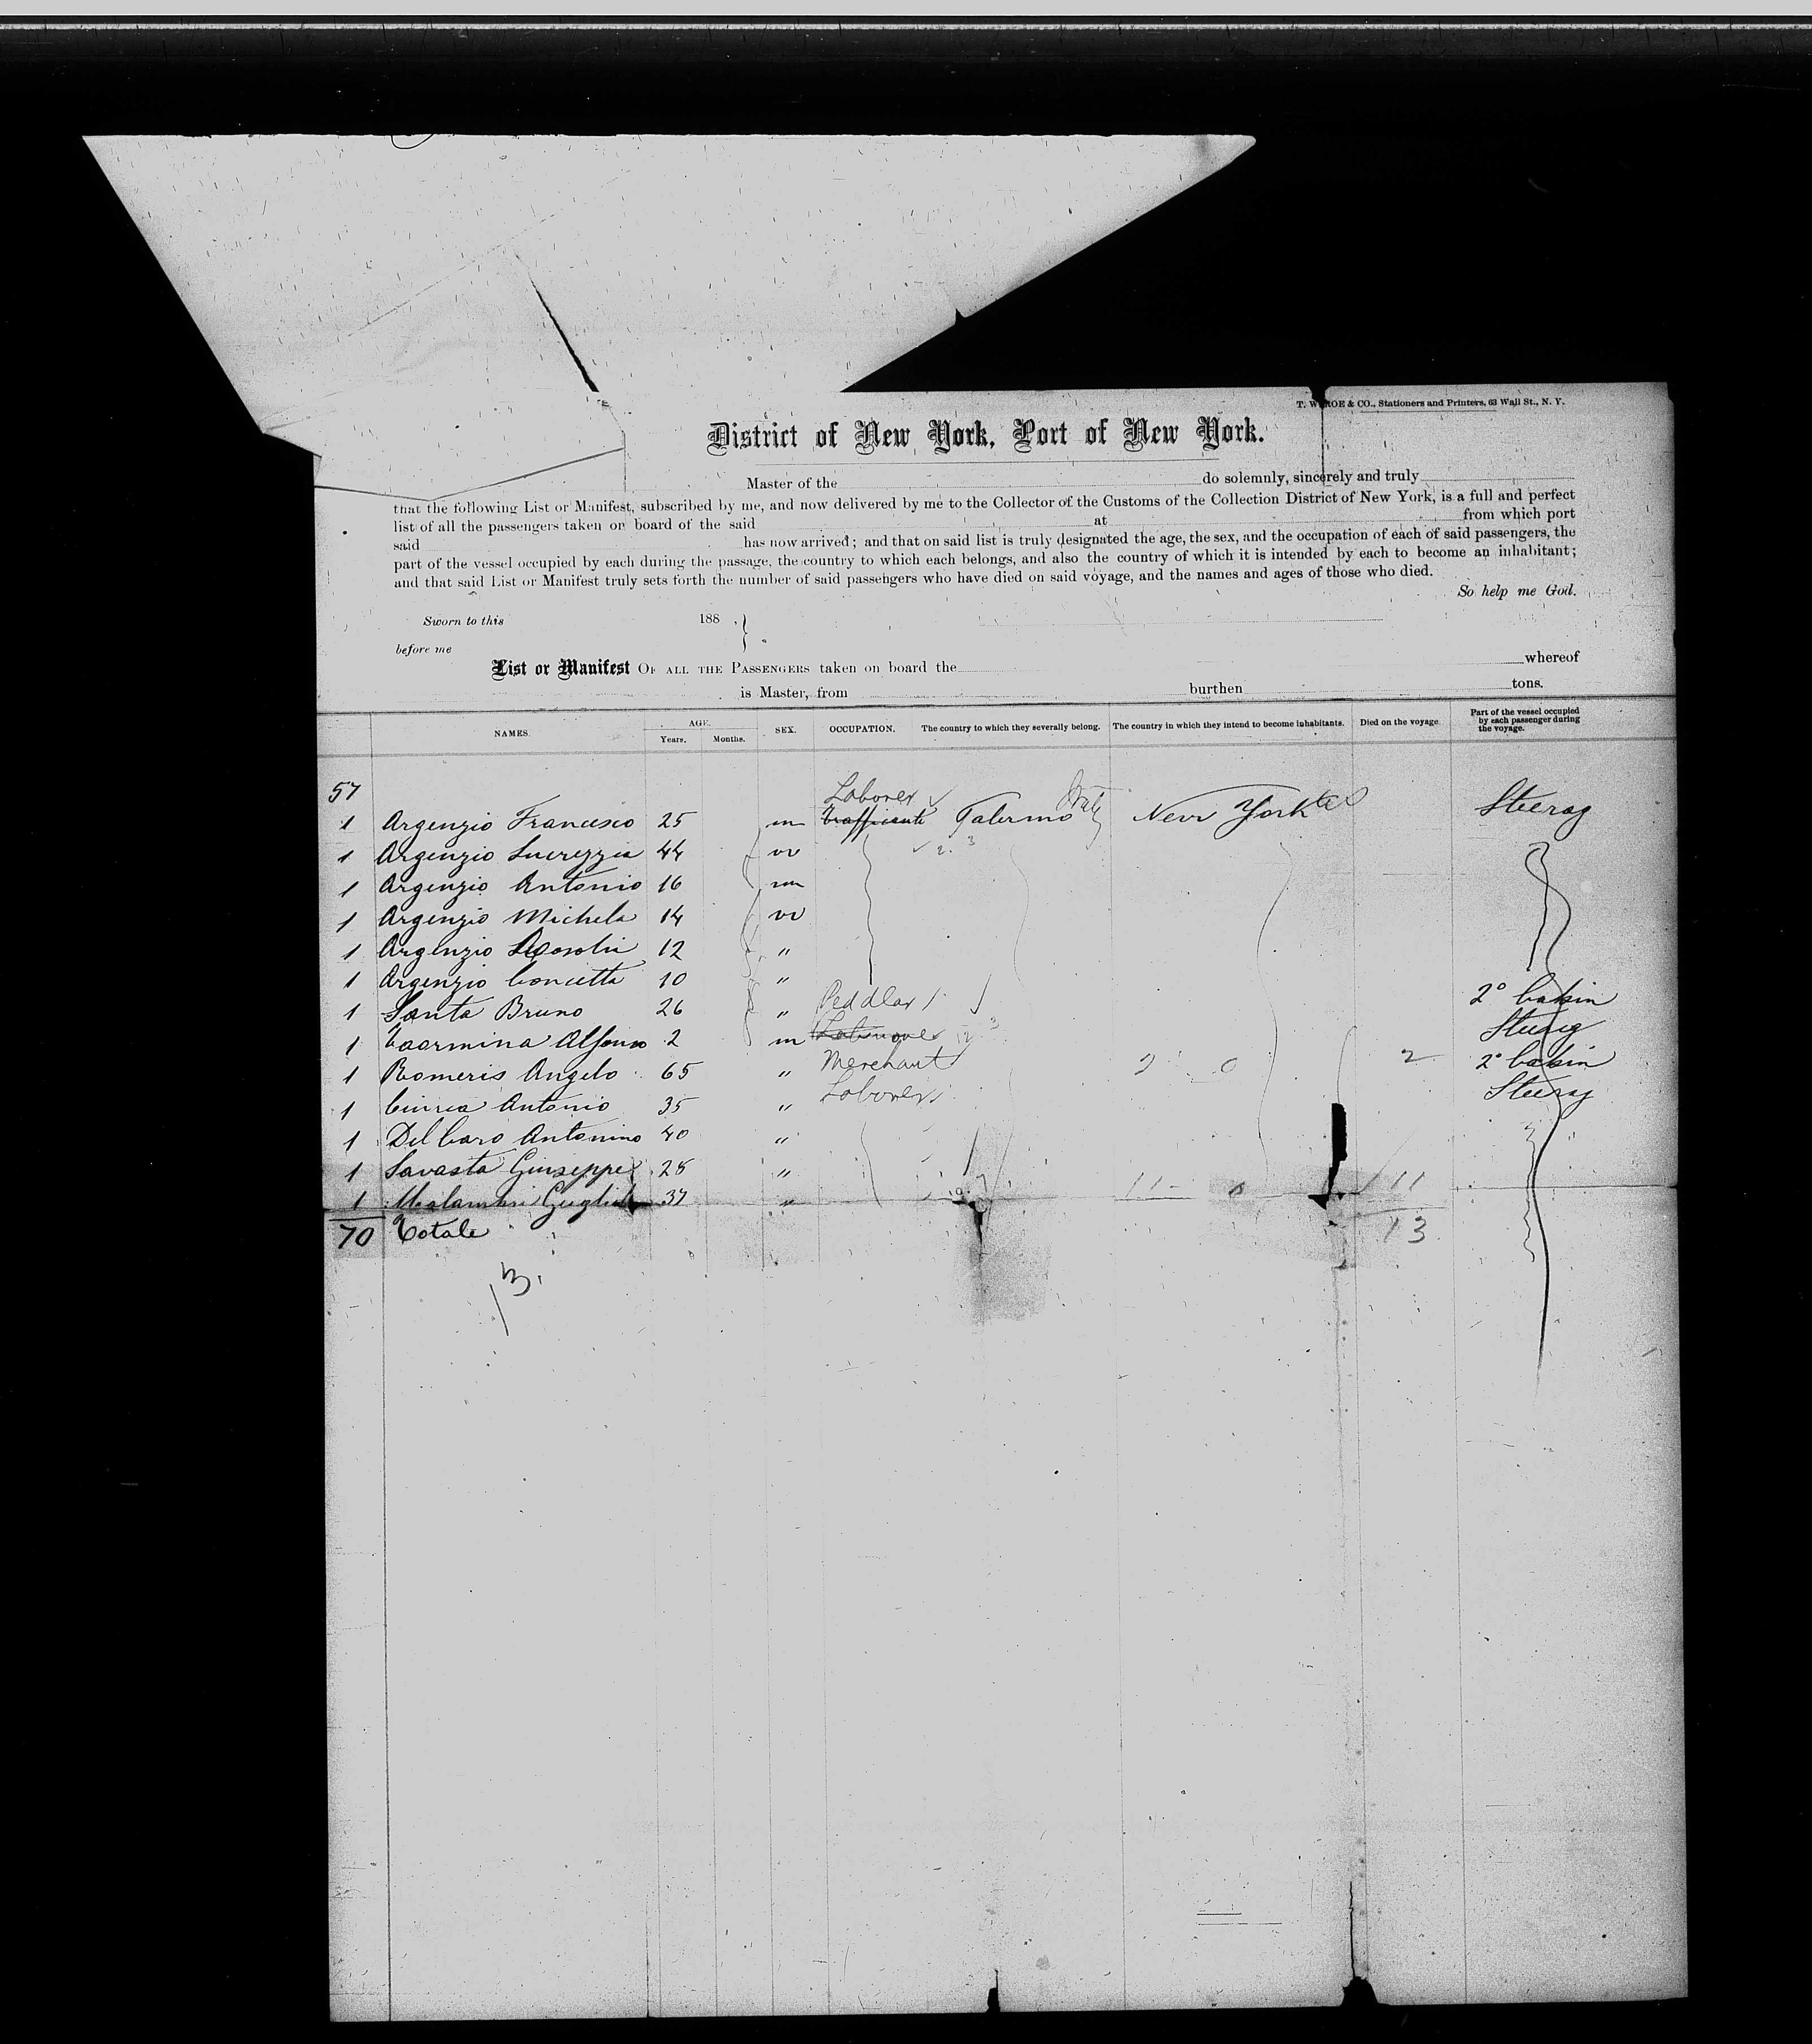 T. W ROE & CO., Stationers and Printers, 63 Wall St., N. Y.
District of New York, Port of New York.
Master of the do solemnly, sincerely and truly
that the following List or Manifest, subscribed by me, and now delivered by me to the Collector of the Customs of the Collection District of New York, is a full and perfect
list of all the passengers taken on board of the said at from which port
said has now arrived; and that on said list is truly designated the age, the sex, and the occupation of each of said passengers, the
part of the vessel occupied by each during the passage, the country to which each belongs, and also the country of which it is intended by each to become an inhabitant;
and that said List or Manifest truly sets forth the number of said passengers who have died on said voyage, and the names and ages of those who died.
So help me God.
Sworn to this 188 ,
before me
List or Manifest OF ALL THE PASSENGERS taken on board the whereof
is Master, from burthen tons.
NAMES. AGE. Years. Months. SEX. OCCUPATION. The country to which they severally belong. The country in which they intend to become inhabitants. Died on the voyage. Part of the vessel occupied by each passenger during the voyage.
57 Laborer Italy
1 Argenzio Francesco 25 m Trafficante Palermo New York Steerag
1 Argenzio Lucrezzia 44 w
1 Argenzio Antonio 16 m
1 Argenzio Michela 14 w
1 Argenzio 12 "
1 Argenzio Concetta 10 "
1 Santa Bruno 26 " Peddlar 2° Cabin
1 Taormina Alfonso 2 m Steerag
1 Romeris Angelo 65 " Merchant 2 0 2 2° Cabin
1 Antonio 35 " Laborer Steerag
1 Del Caro Antonino 40 "
1 Savasta Giuseppe 25 "
1 37 " 11 0 11
70 Totale 13
13